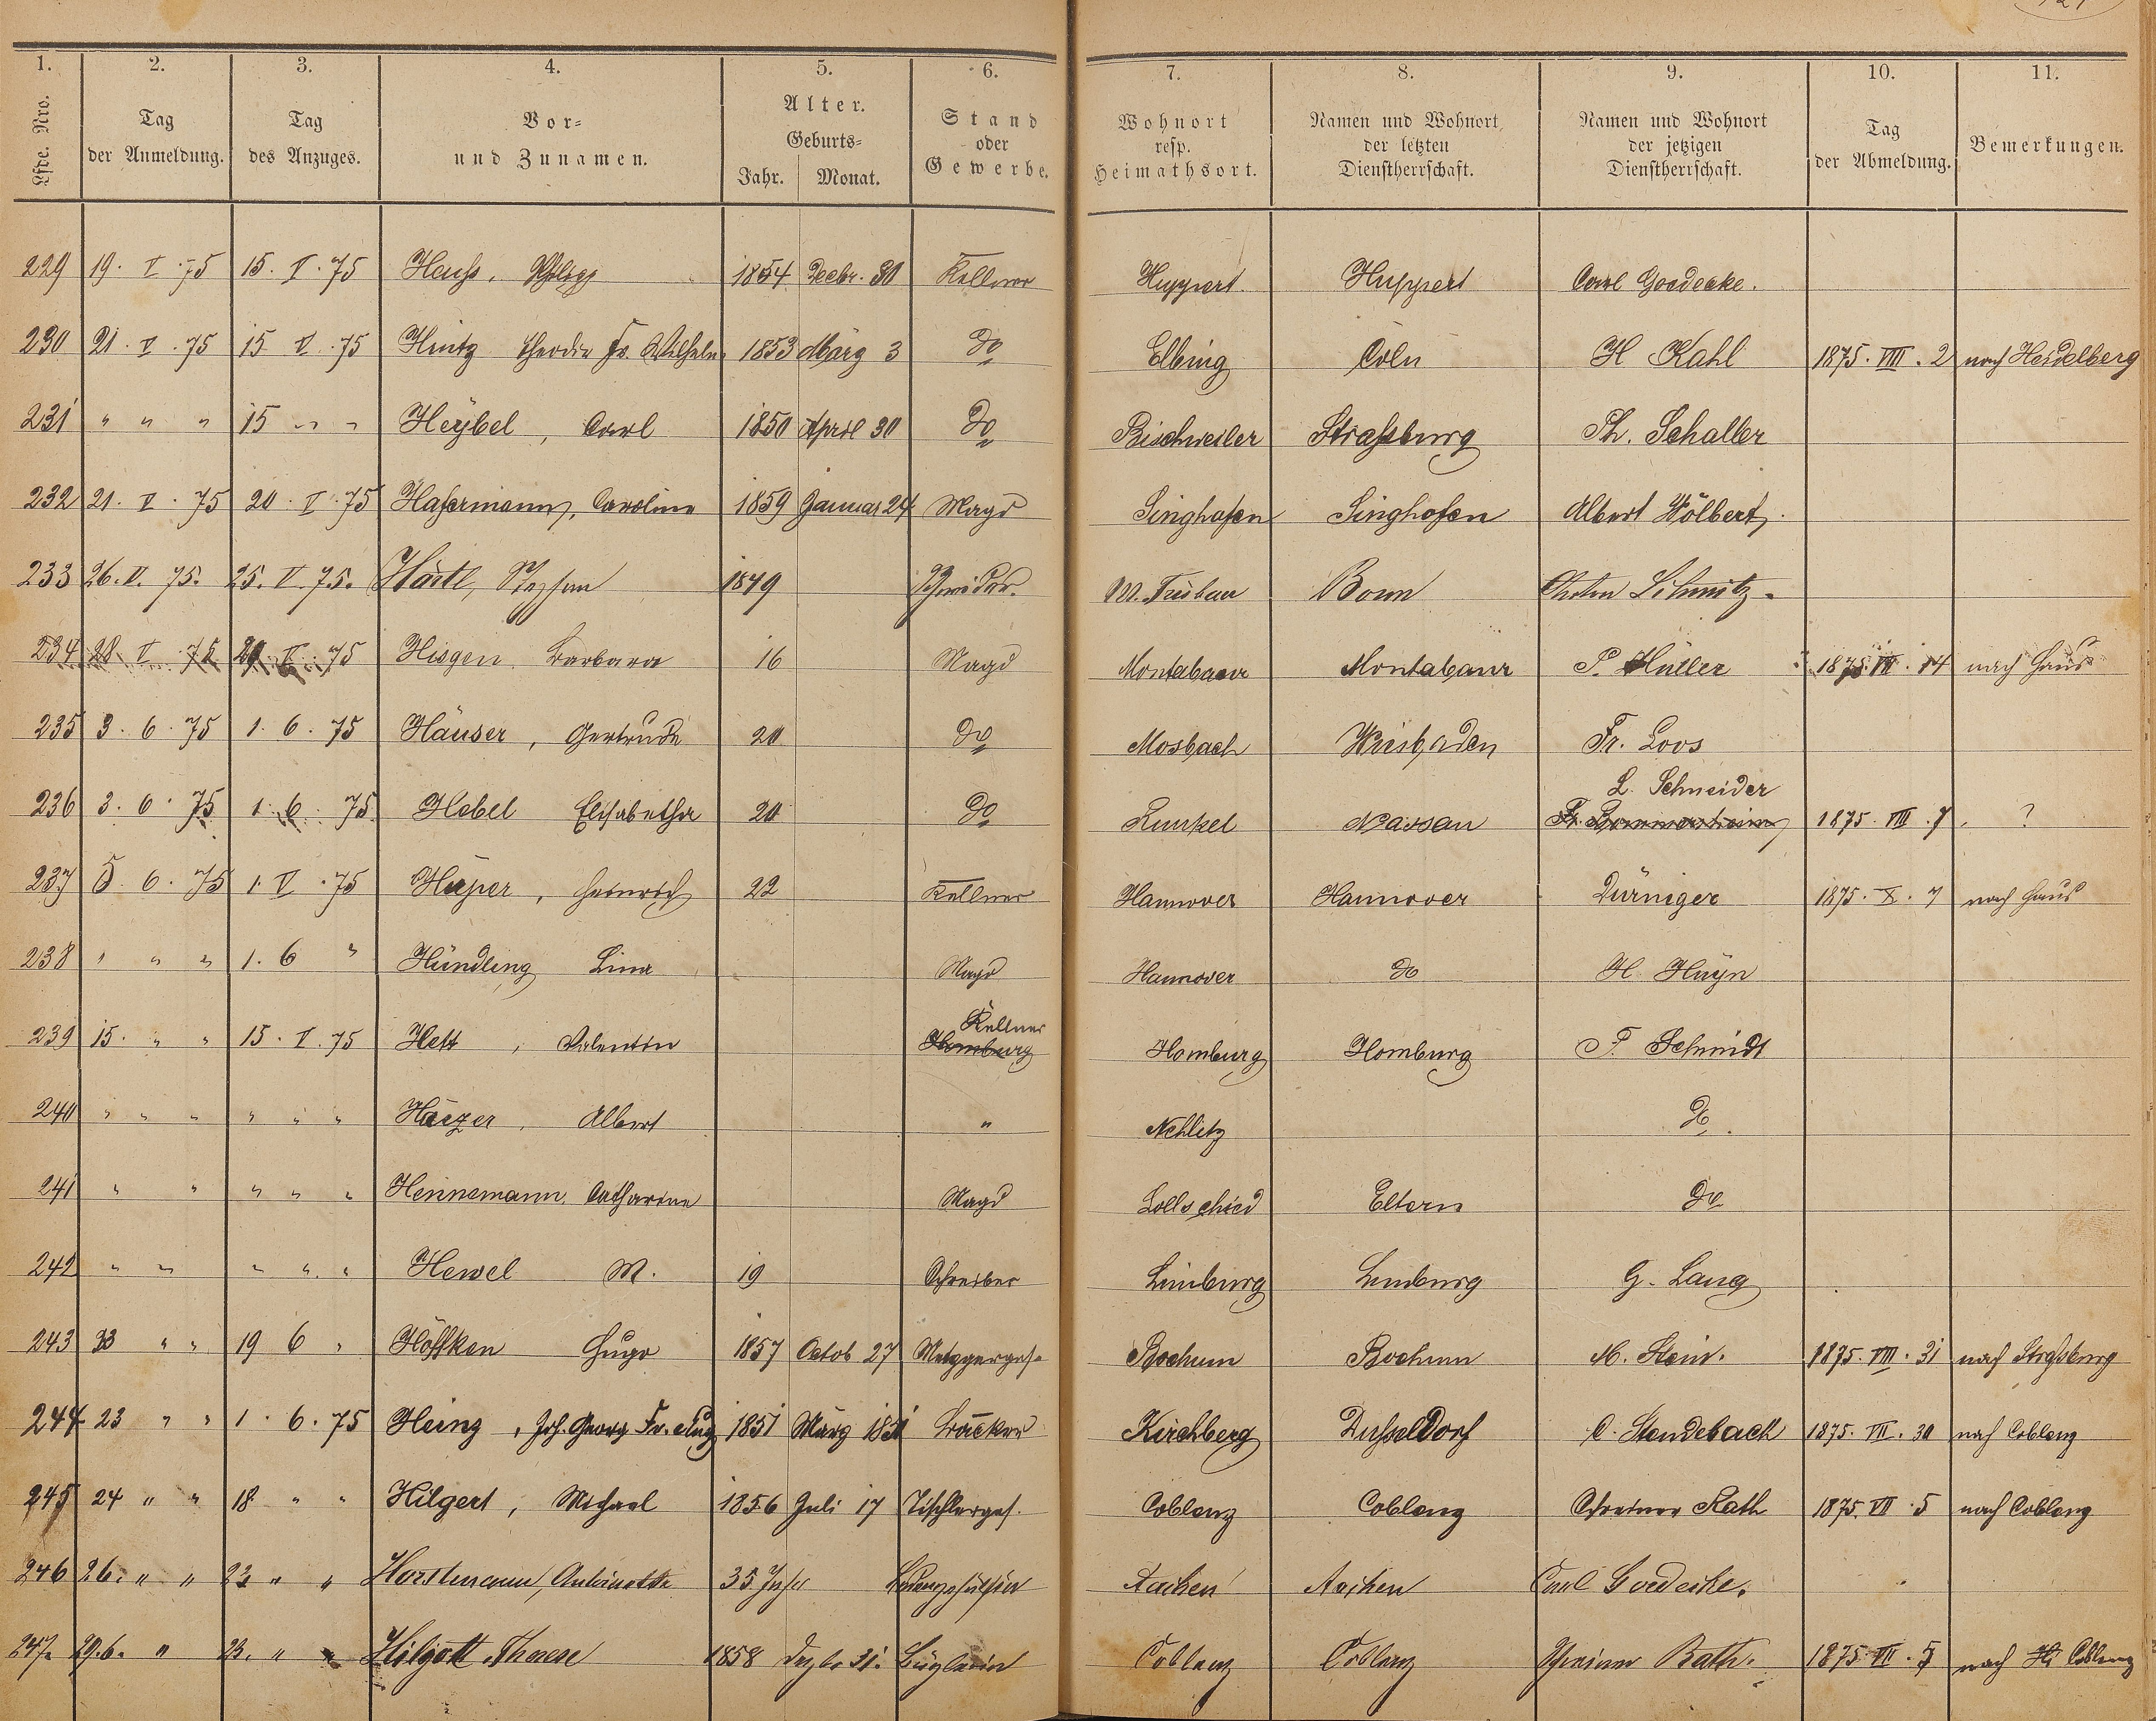 1. 2. 3. 4. 5. 6. 7. 8. 9. 10. 11.
Lfde. Nro. Tag der Anmeldung. Tag des Anzuges. Vor- und Zunamen. Alter. Geburts- Jahr. Monat. Stand oder Gewerbe. Wohnort resp. Heimathsort. Namen und Wohnort der letzten Dienstherrschaft. Namen und Wohnort der jetzigen Dienstherrschaft. Tag der Abmeldung. Bemerkungen.
229 19. V. 75 15. V. 75 Hauß, Philipp 1854 Decbr. 30 Kellner Huppert. Huppert Carl Goedecke.
230 21. V. 75 15 V. 75 Hintz Theodor Fr. Wilhelm 1853 März 3 do Elbing Cöln H Kahl 1875. VIII. 2 nach Heidelberg
231 " " " 15 " " Heybel, Carl 1850 April 30 do Bischweiler Straßburg Ph. Schaller
232 21. V. 75 20. V. 75 Hafermann, Caroline 1859 Januar 24 Magd Singhofen Singhofen Albert Wölbert.
233 26. V. 75. 25. V. 75. Härtl, Stephan 1849 Schneider. M. Trübau Bonn Anton Schmitz.
234 28 V. 75 V. 75 Hisgen Barbara 16 Magd Montabaur Montabaur P. Müller 1875. VII. 14 nach Haus
235 3. 6. 75 1. 6. 75 Häuser, Gertrude 20 do Mosbach Wiesbaden Fr. Loos
236 3. 6. 75 1. 6. 75 Hebel Elisabetha 20 do Runkel Nassau L. Schneider Fr. Bommersheim 1875. VIII. 7. ?
237 5. 6. 75 1. V. 75 Hüper, Heinrich 22 Kellner Hannover Hannover Düringer 1875. X. 7 nach Haus
238 " " " 1. 6 " Hündling Lina Magd Hannover do H. Hayn
239 15. " " 15. V. 75 Hett, Valentin Kellner Homburg Homburg Homburg F. Schmidt
240 " " " " " " Albert " Nehlitz do.
241 " " " " " Hennemann, Catharine Magd Lollschied Eltern do
242 " " " " " Hewel M. 19 Schreiber Limburg Limburg G. Lang
243 23 " " 19 6 " Höffken Hugo 1857 Octob 27 Metzgerges. Bochum Bochum M. Stein. 1875. VIII. 31 nach Straßburg
244 23 " " 1. 6. 75 Heinz, Joh. Georg Fr. Aug 1851 März Bäcker Kirchberg Dusseldorf C. Stendebach 1875. VII. 30 nach Coblenz
245 24 " " 18 " " Hilgert, Michael 1856 Juli 17 Tischlerges. Coblenz Coblenz Schreiner Rath 1875. VII. 5 nach Coblenz
246 26. " " 23 " " Horstmann, Antoinette 35 Jahr Ladengehülfin Aachen Aachen Carl Goedecke.
247. 29. 6. " 23. " " Hilgott, Therese 1858 Dezbr 31. Büglerin Coblenz Coblenz Schreiner Rath. 1875. VII. 5 nach Coblenz